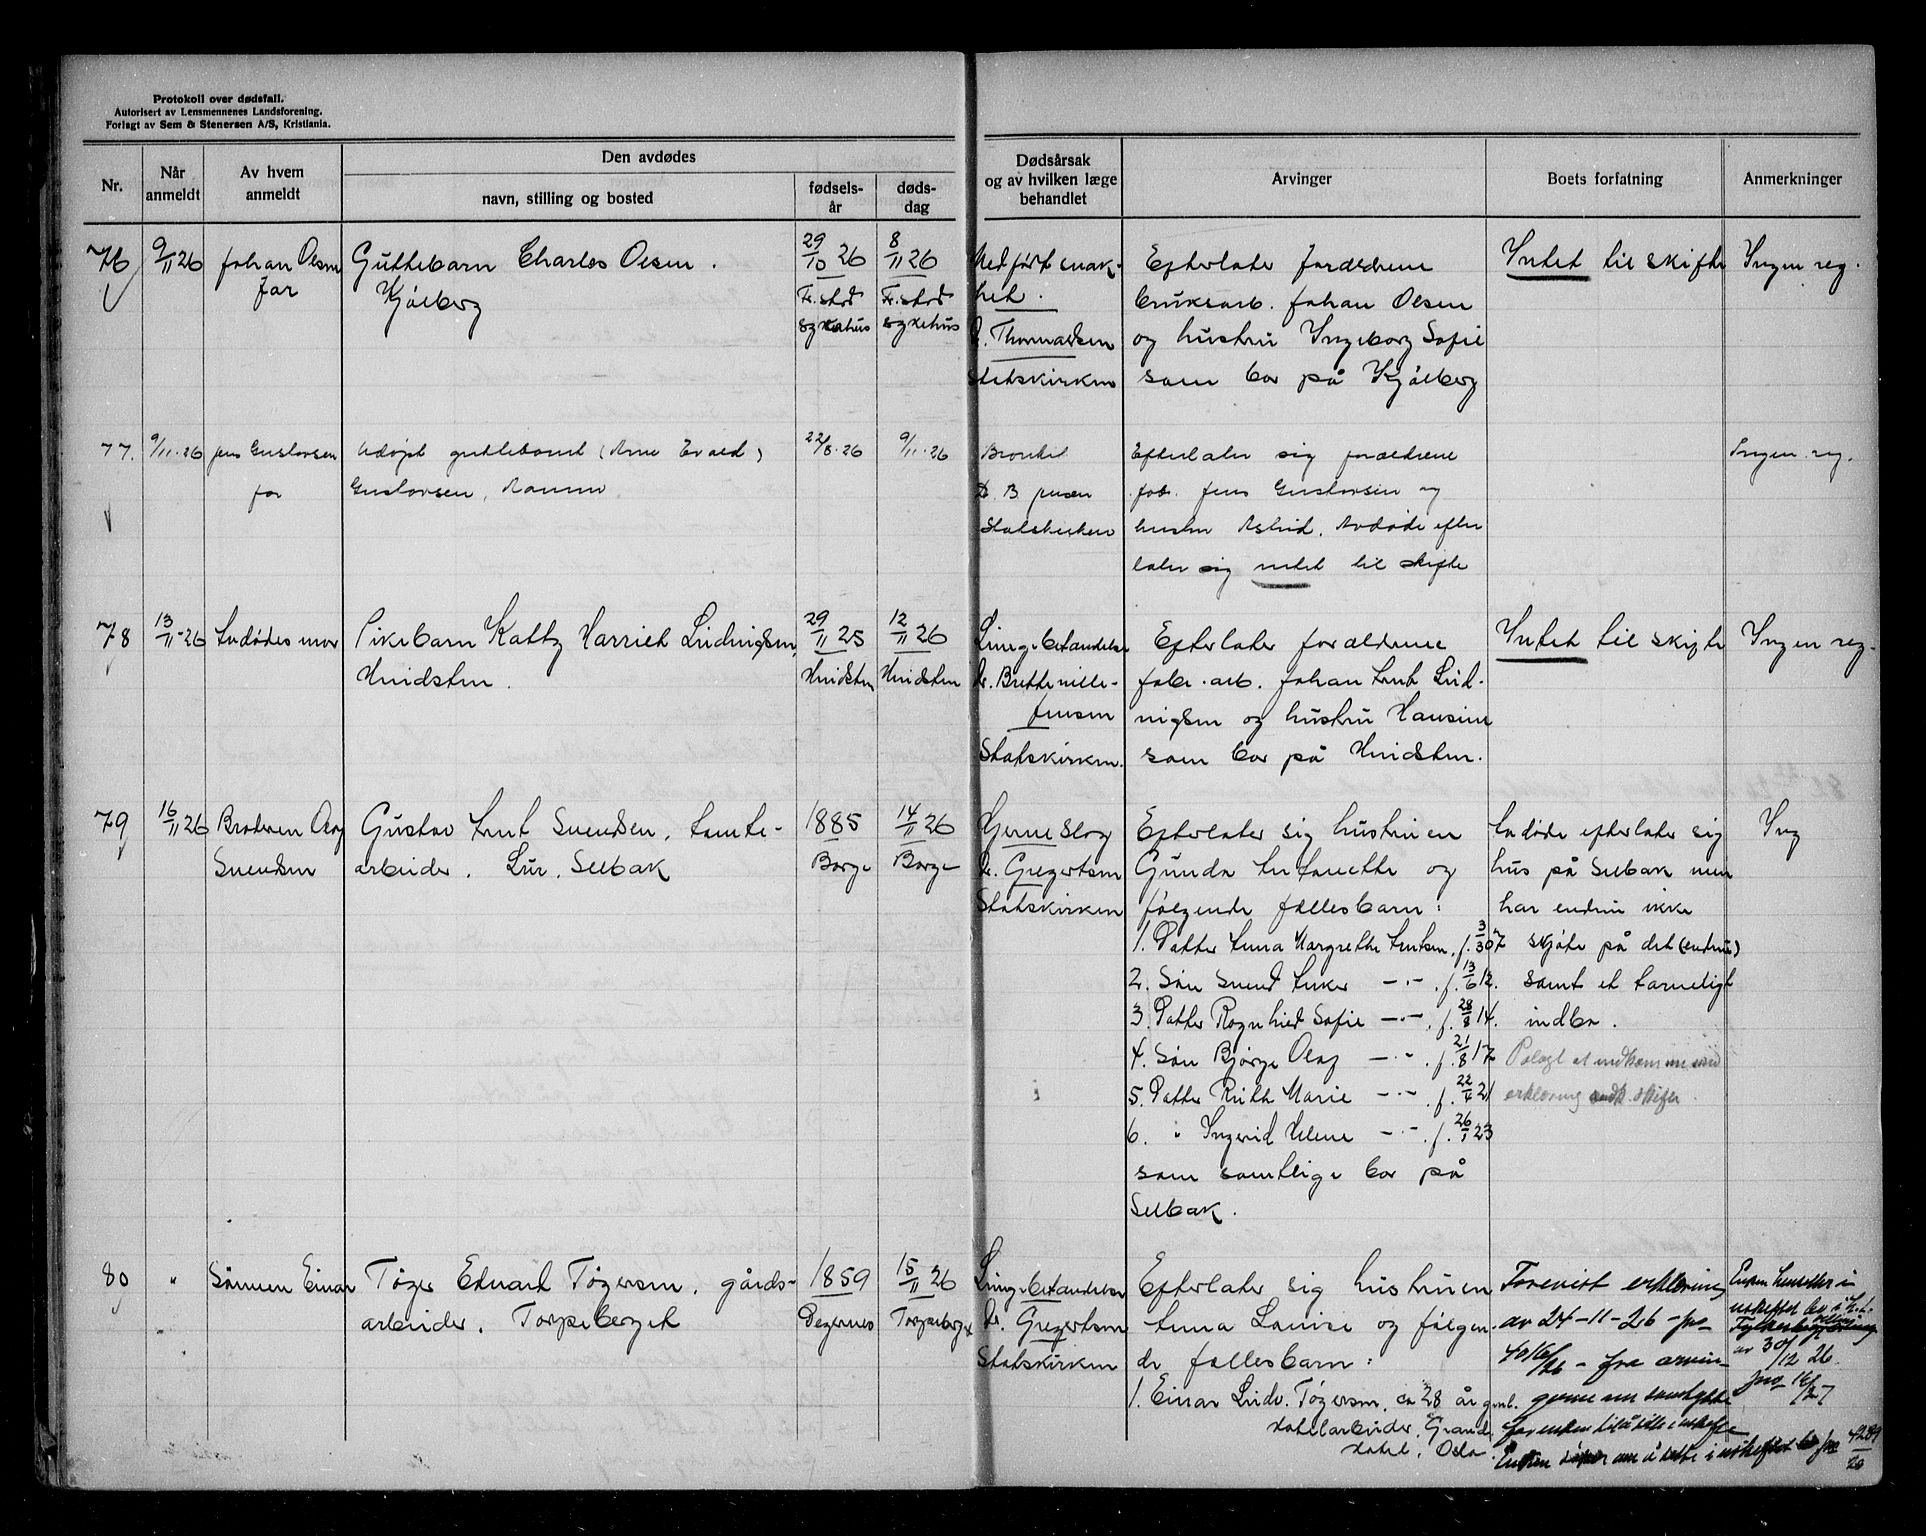 Protokoll over dødsfall.
Autorisert av Lensmennenes Landsforening.
Forlagt av Sem & Stenersen A/S, Kristiania.
Nr.
Når anmeldt
Av hvem anmeldt
Den avdødes
navn, stilling og bosted
fødsels-år
døds-dag
Dødsårsak og av hvilken læge behandlet
Arvinger
Boets forfatning
Anmerkninger
76
9/11 26
Johan Olsen
far
Guttebarn Charles Olsen.
Kjølberg
29/10 26
Fr.stad
sykehus
8/11 26
Fr.stad
sykehus
Medført svak-
het.
Dr. Thormodsen
Statskirken
Efterlater forældrene
bruksarb. Johan Olsen
og hustru Ingeborg Sofie
som bor på Kjølberg
Intet til skifte
Ingen reg.
77.
9/11.26
Jens Gustavsen
far
Udøpt guttebarn (Arne Evald)
Gustavsen,
22/8.26
9/11.26
Bronkit
Dr. B. Jensen
Statskirken
Efterlater sig forældrene
fab. Jens Gustavsen og
hustru Astrid. Avdøde efter
later sig intet til skifte
Ingen reg.
78
13/11-26
Avdødes mor
Pikebarn Kathy Harriet Ludvigsen,
Hvidsten.
29/11 25
Hvidsten
12/11 26
Hvidsten
Lungebetændelse
Dr. Bretteville-
Jensen
Statskirken.
Efterlater forældrene
fabr. arb. Johan Arnt Lud-
vigsen og hustru Hansine
som bor på Hvidsten.
Intet til skifte
Ingen reg.
79
16/11 26
Broderen Olaf
Svendsen
Gustav Arnt Svendsen, tomte-
arbeider. Lur, Selbak
1885
Borge
14/11 26
Borge
Hjerneslag
Dr. Gregertsen
Statskirken
Efterlater sig hustruen
Gunda Antonette og
følgende fællesbarn:
1. Datter Anna Margrethe Arntsen, f. 3/3 07
2. Søn Svend Anker -"- , f. 13/6 12.
3. Datter Ragnhild Sofie -"- , f. 28/8 14.
4. Søn Bjørge Olaf -"- , f. 21/8 17
5. Datter Ruth Marie -"- , f. 22/4 21
6. " Ingerid Helene -"- , f. 26/1 23
som samtlige bor på
Selbak.
Avdøde efterlater sig
hus på Selbak men
har endnu ikke
skjøte på det (endnu)
samt et tarveligt
indbo.
Pålagt at indkomme med
erklæring skifter.
Ing
80
"
Sønnen Einar
Tøger Edvard Tøgersen, gårds-
arbeider. Torpeberget
1859
Degernes
15/11 26
Torpeberget
Lungebetændelse
Dr. Gregertsen
Statskirken
Efterlater sig hustruen
Anna Louise og følgen-
de fællesbarn:
1. Einar Ludv. Tøgersen, ca 28 år gml.
Hotelarbeider, Grand
Hotel, Oslo.
Forevist erklæring
av 24-11-26 - jno
4016/26 - fra arvin-
gerne om samtykke
for enken til å sitte i uskifte
Enken søker om å sitte i uskiftet bo jno 4289/26
Enken hensitter i
uskiftet bo i h.t.
av 30/12 26.
jno 16/27